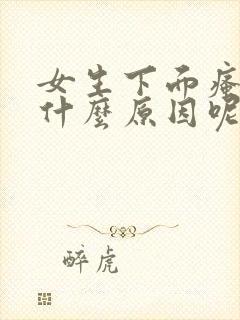 女生下而癢
什麼原因呢
醉虎